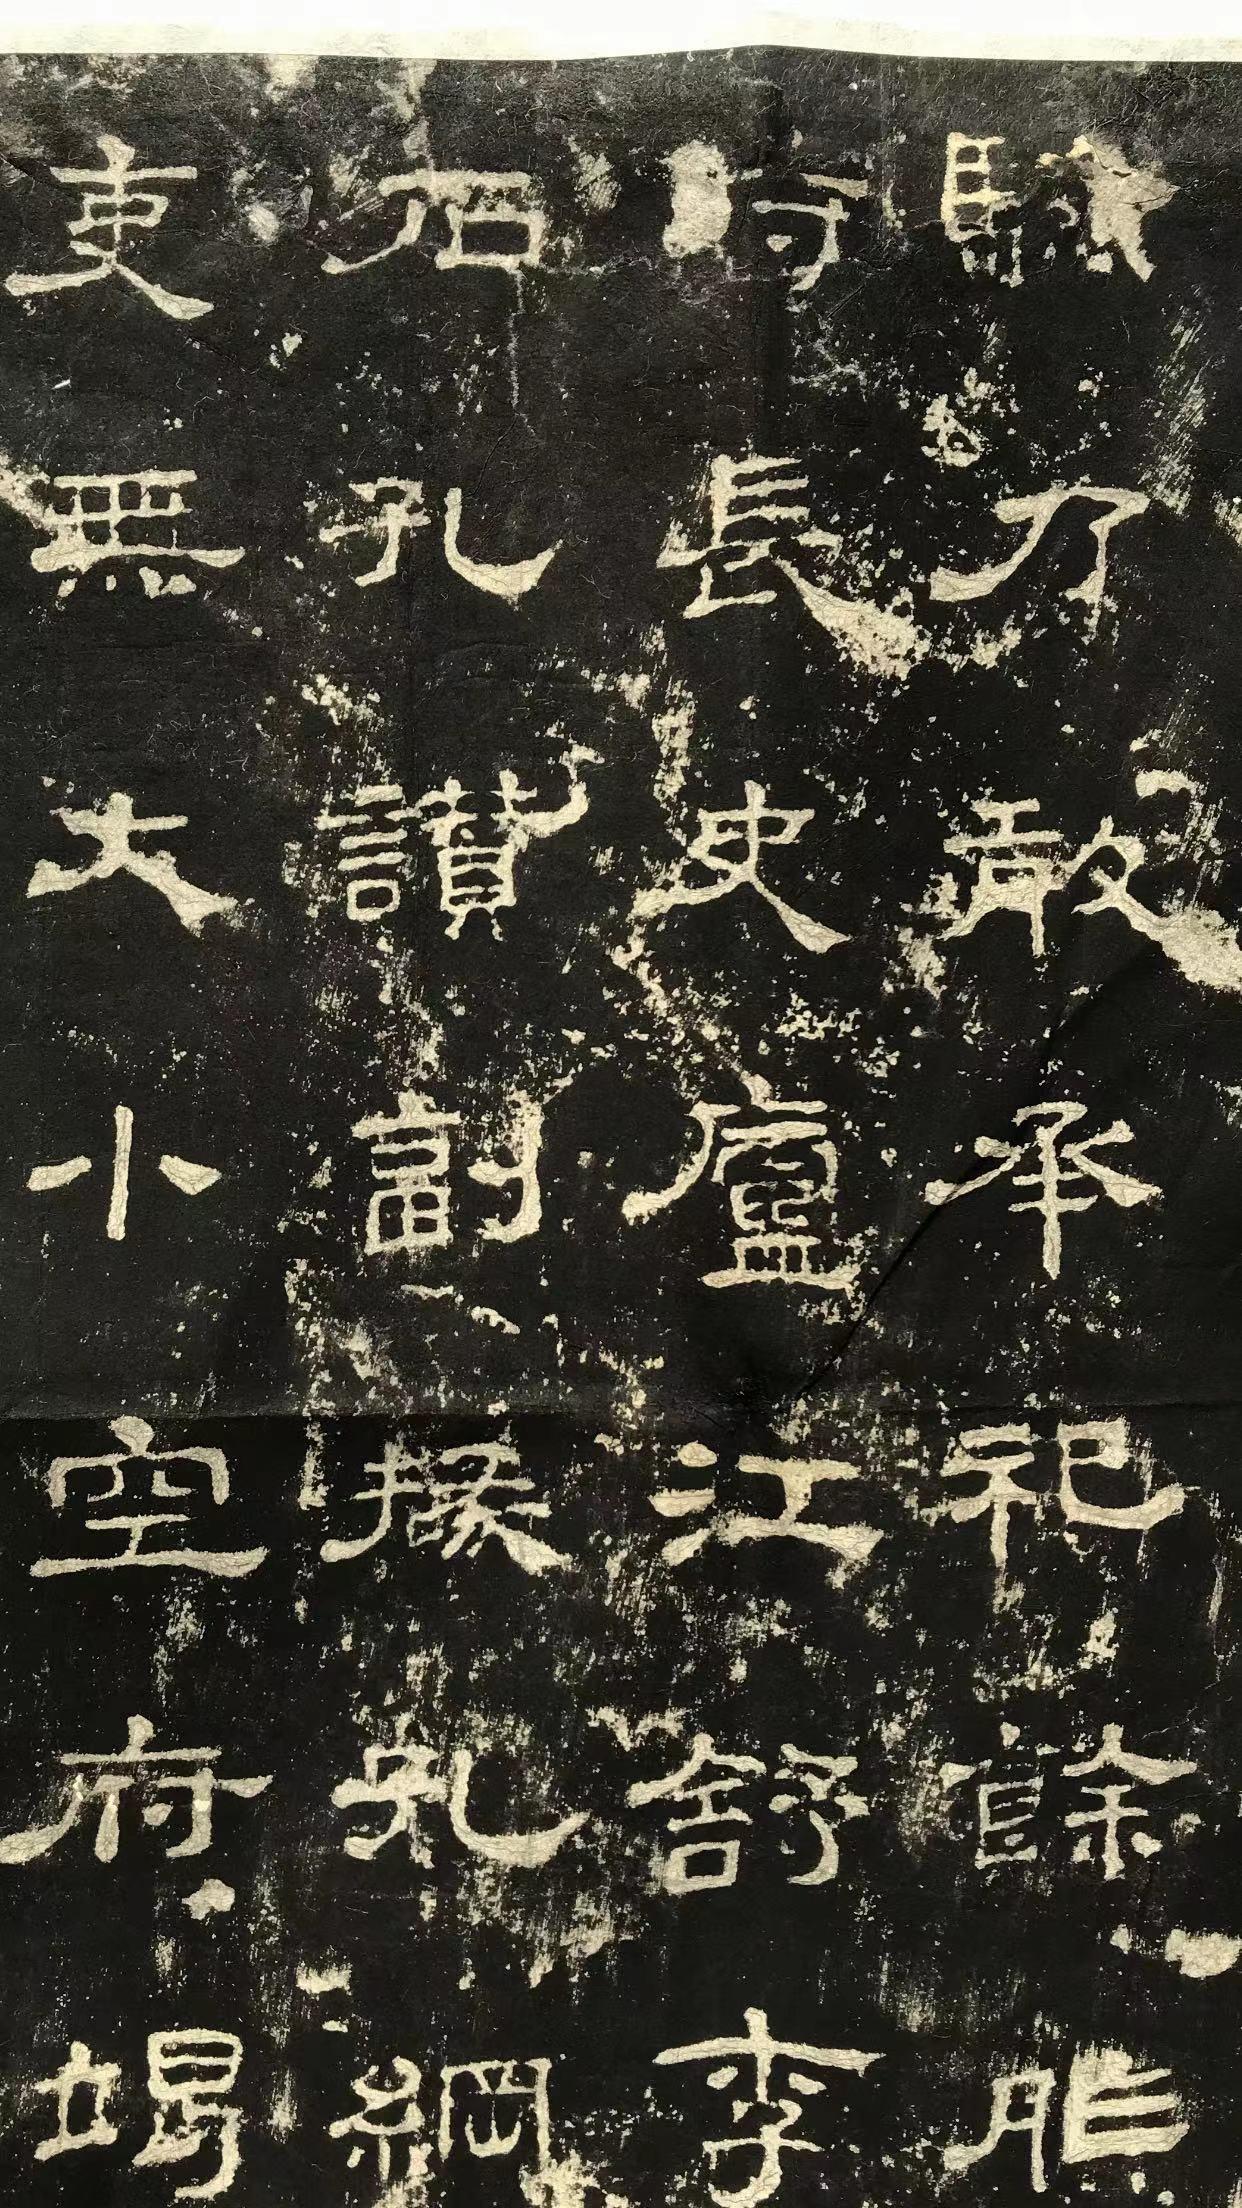 驗乃敢承祀餘胙
時長史廬江舒李
石孔讚副掾孔綱
吏無大小空府竭